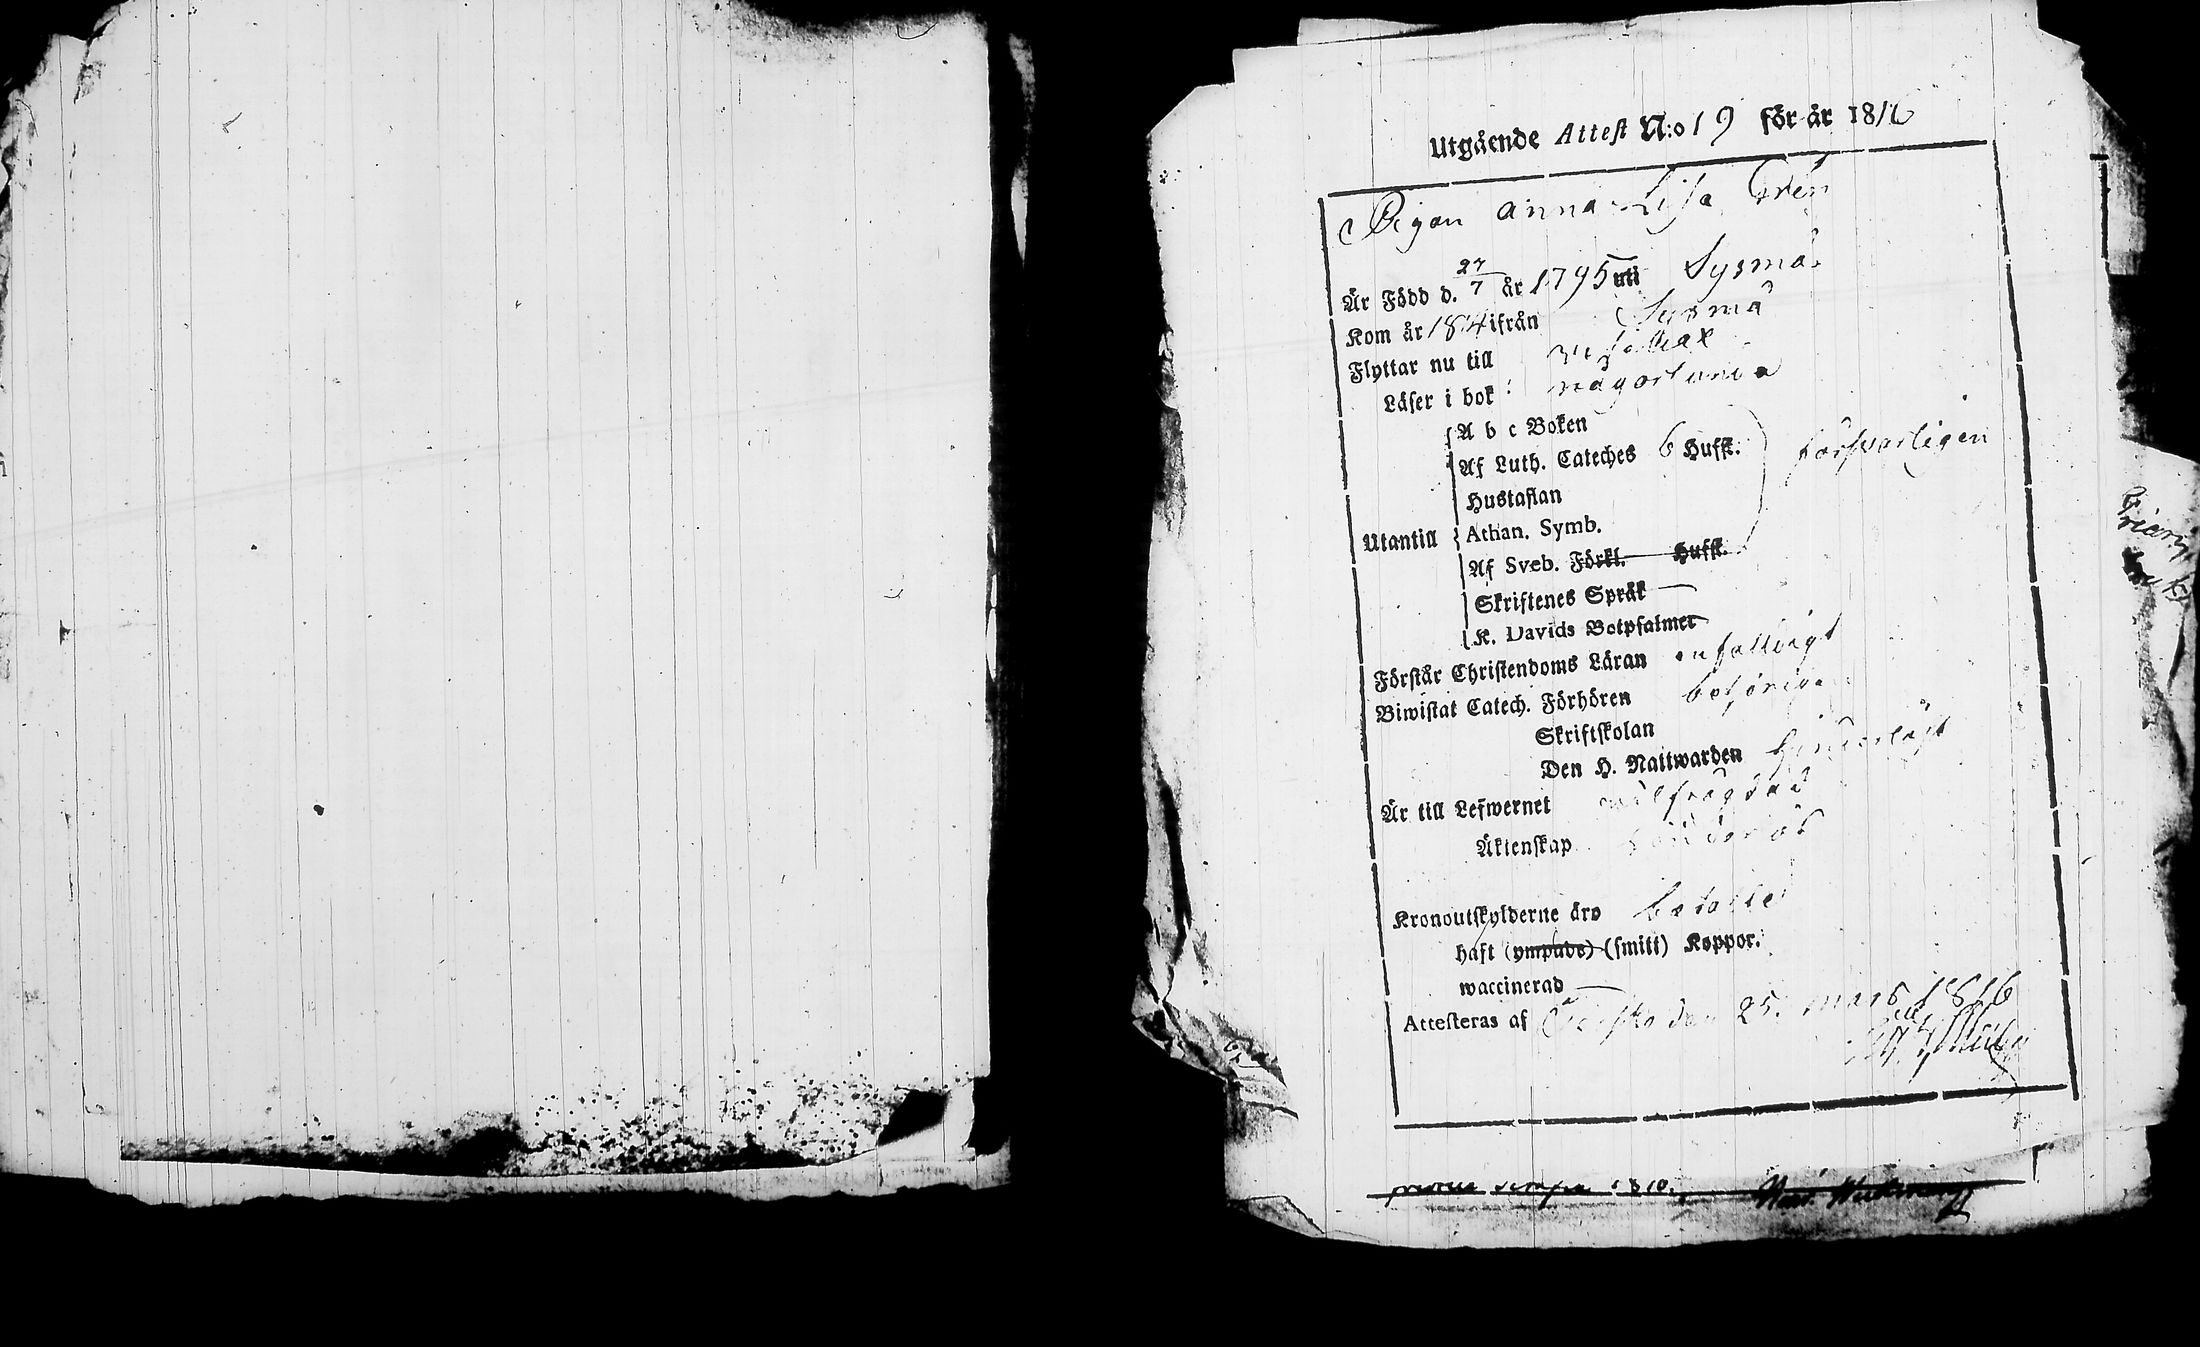 Utgående Attest N:o 19 för år 1816
Pigan Anna Lisa Grén
Är Född d. 27/7 år 1795 uti Sysmä.
Kom år 1814 ifrån Sysmä
Flyttar nu till
Läser i bok någorlunda
A b c Boken
Af Luth. Cateches 6 Hufst. försvarligen
Hustaflan
Utantill Athan. Symb.
Af Sveb. Förkl. Hufst.
Skriftenes Språk
K. Davids Botpsalmer
Förstår Christendoms Läran enfalldigt
Biwistat Catech. Förhören behörigen
Skriftskolan
Den H. Nattwarden hinderlöst
Är till Lefwernet wälfrägdad
Äktenskap hinderlös
Kronoutskylderne äro betalte
haft (ympade) (smitt) Koppor.
waccinerad
Attesteras af den 25. Mars 1816